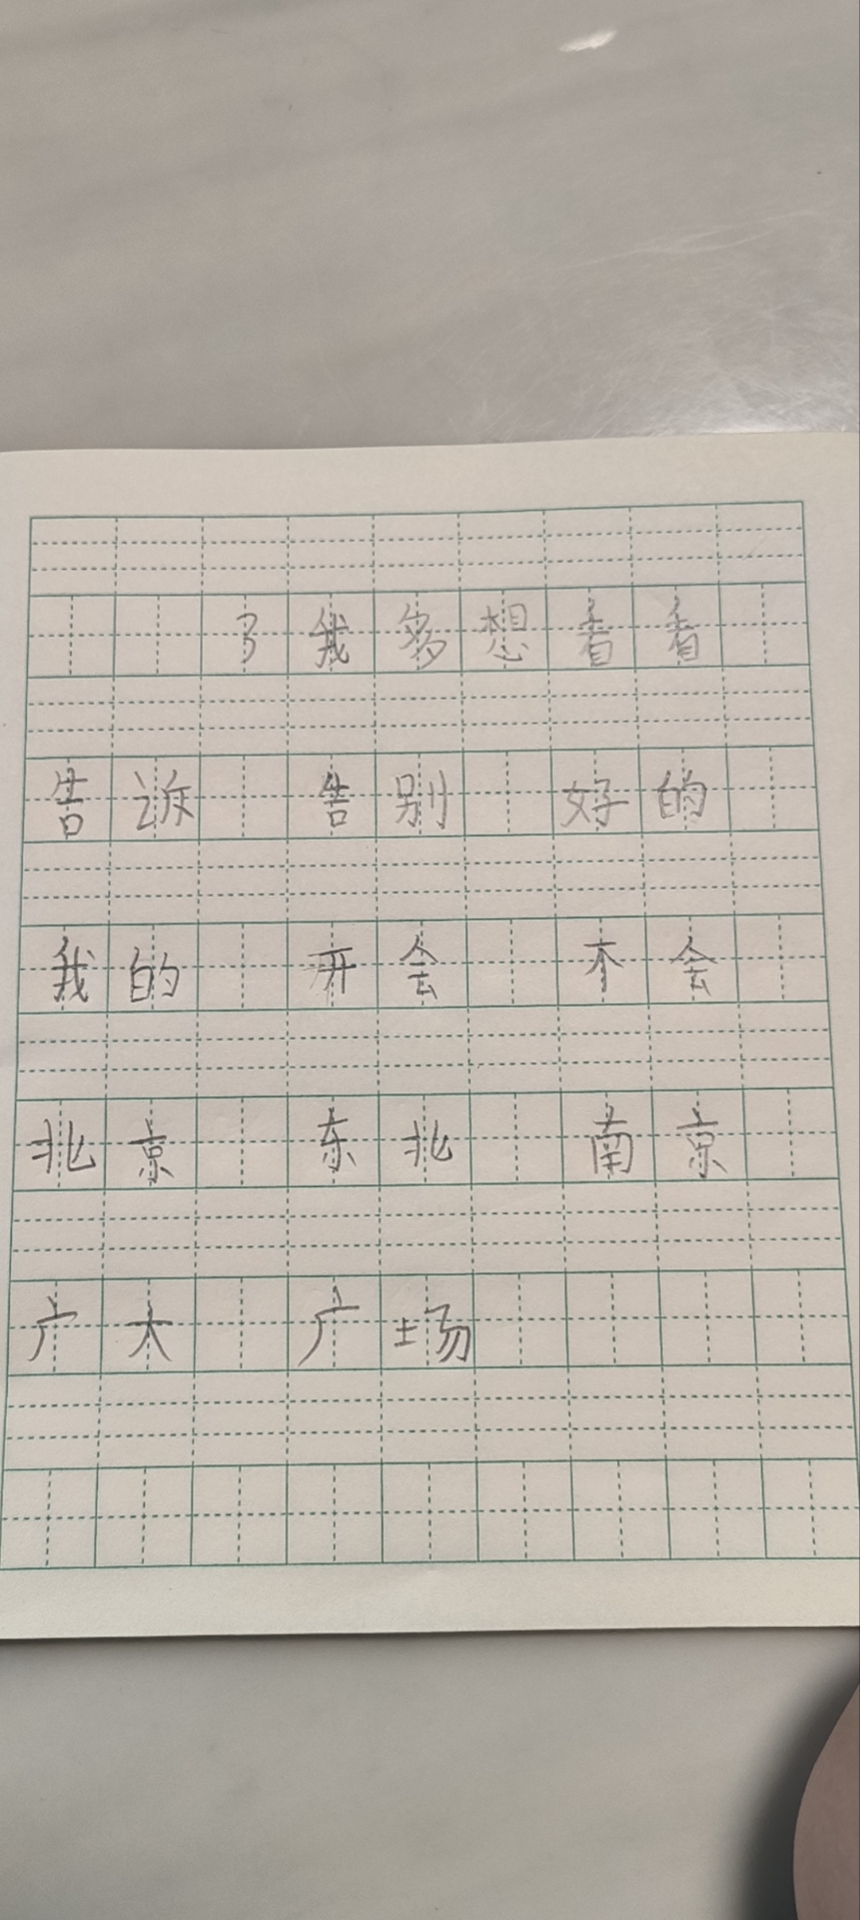 3我多想看看
告诉 告别 好的
我的 开会 不会
北京 东北 南京
广大 广场